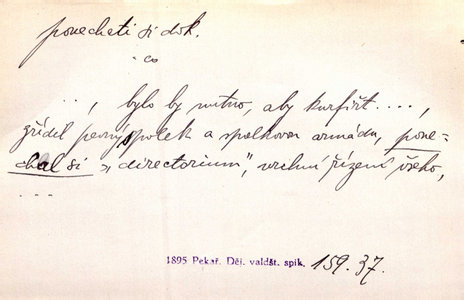 ponechati si dok.
. co
. . . , bylo by nutno, aby kurfiřt . . . . ,
zřídil pevný spolek a spolkovou armádu, pone=
chal si „directorium", vrchní řízení všeho,
. . .
1895 Pekař. Děj. valdšt. spik. 159. 37.